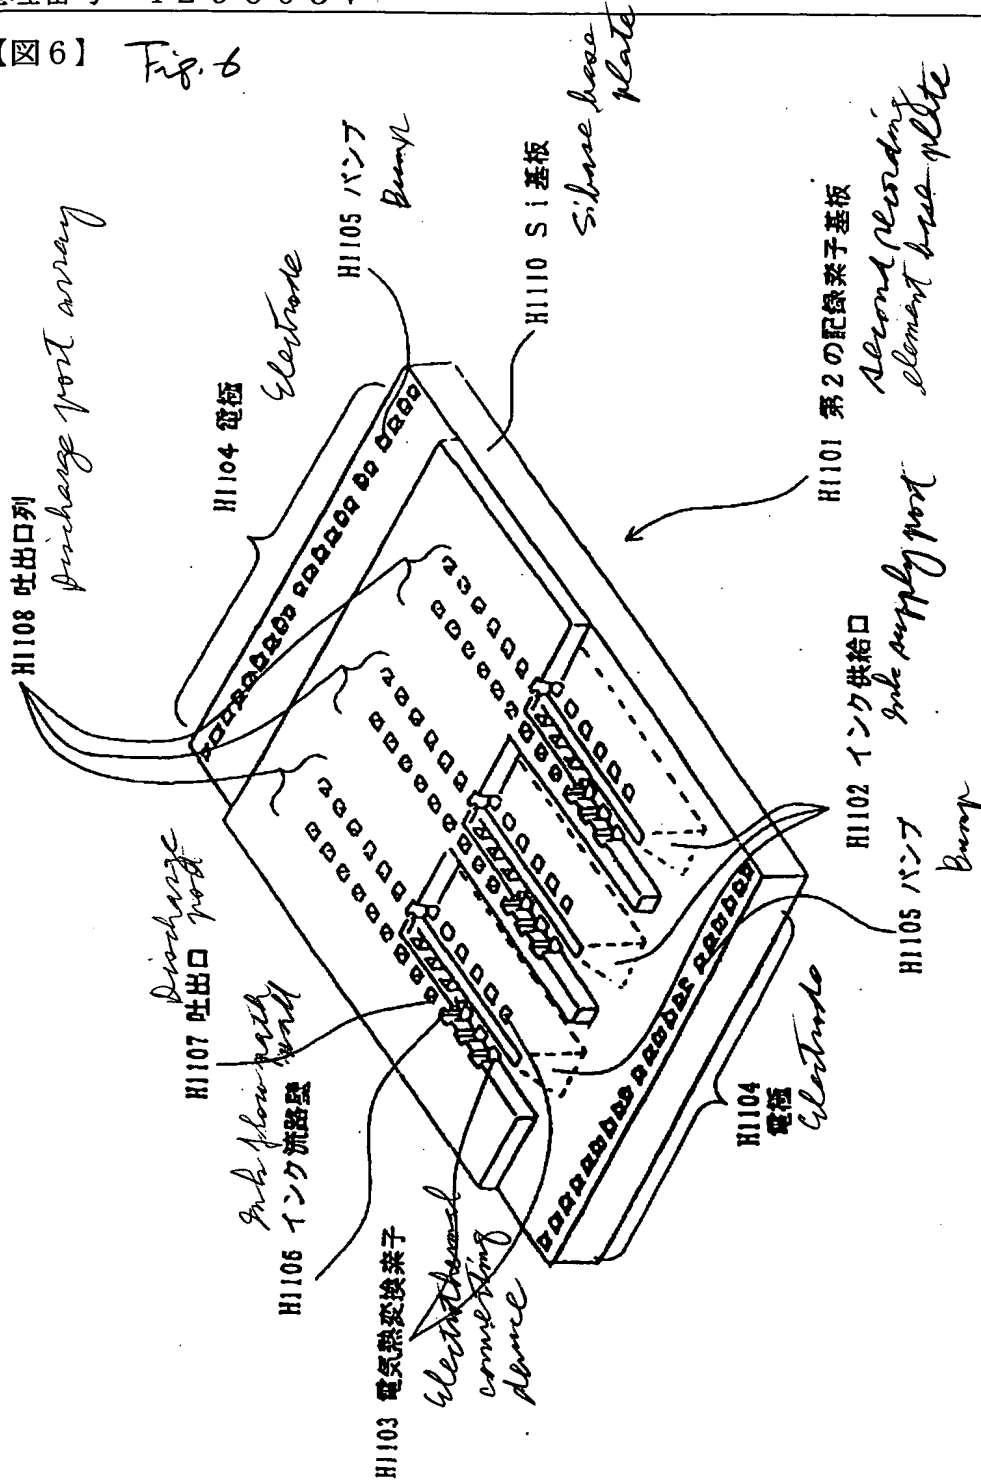 【図６】 Fig. 6
H1108 吐出口列
Discharge port array
H1104 電極
Electrode
H1105 バンプ
Bump
H1110 Ｓｉ基板
Si base base
plate
H1101 第２の記録素子基板
second recording
element base plate
H1102 インク供給口
Ink supply port
H1105 バンプ
Bump
H1104
電極
Electrode
H1107 吐出口
Discharge
port
H1106 インク流路壁
Ink flow path
wall
H1103 電気熱変換素子
Electrothermal
converting
device